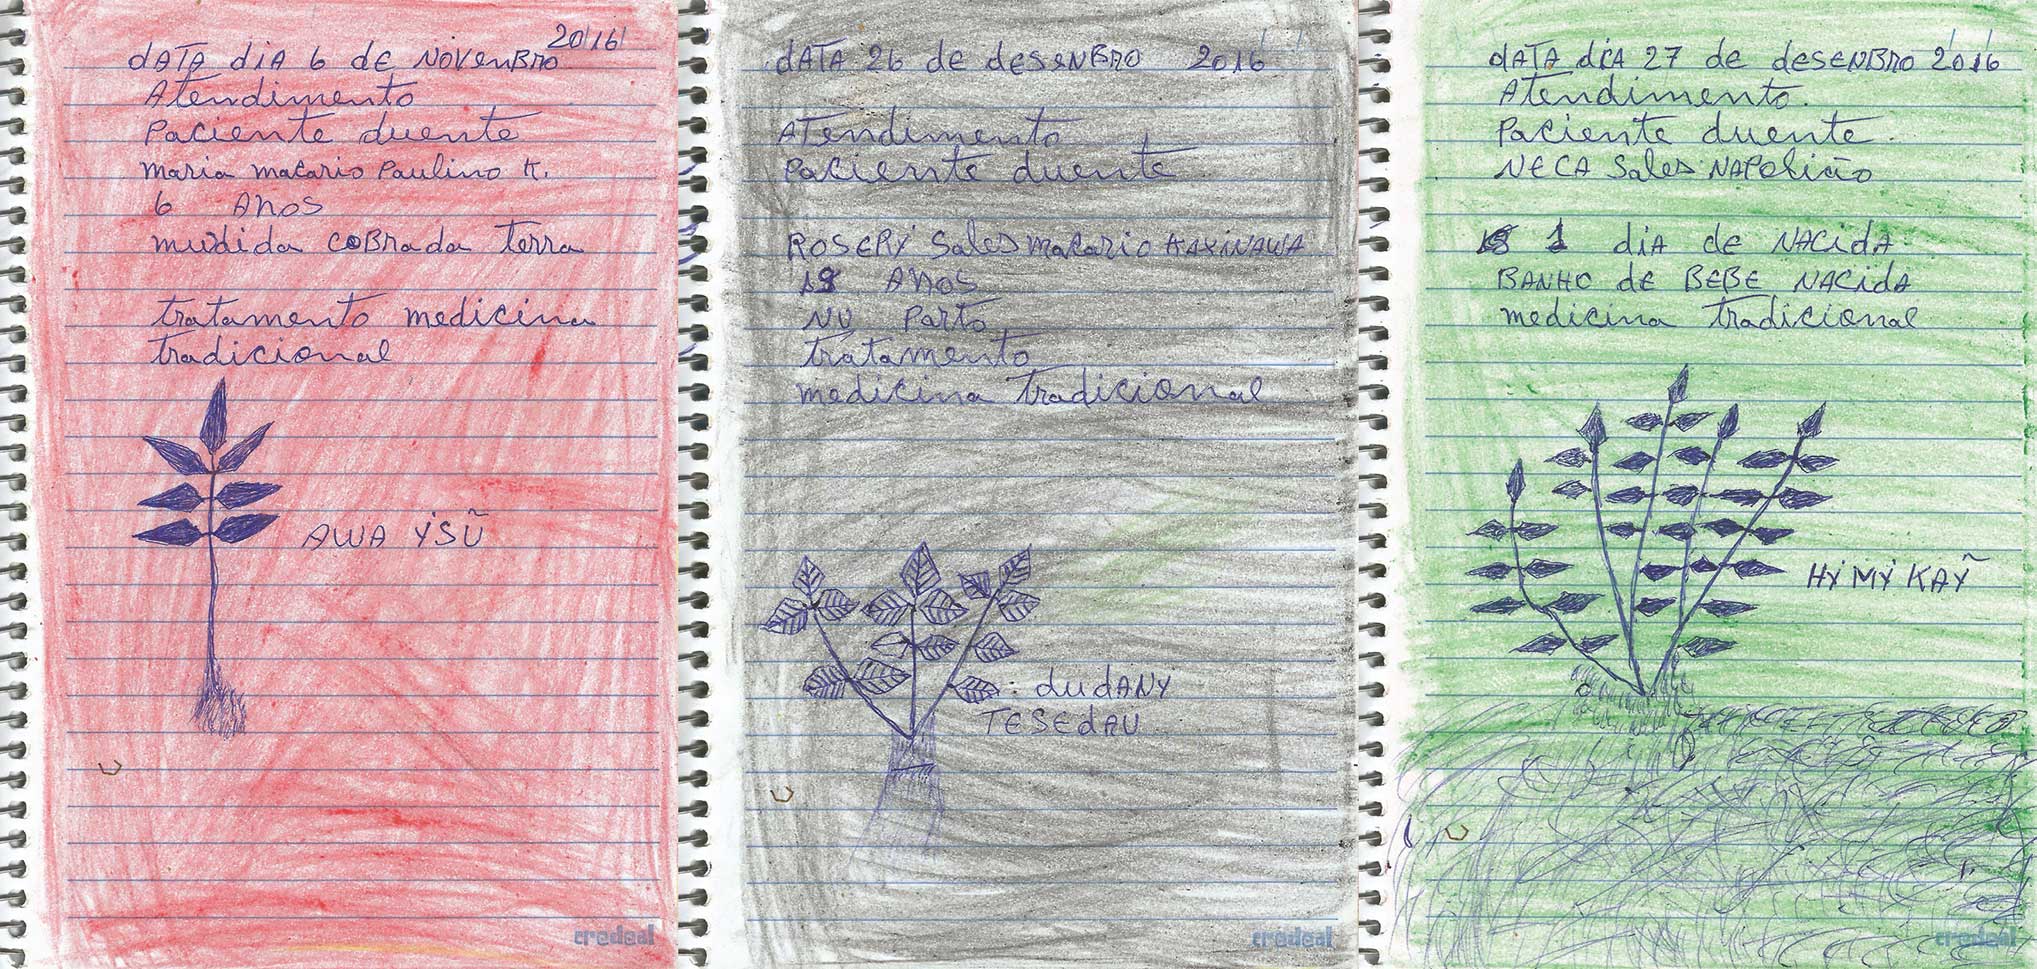 2016
dATA diA 6 de NOVenBRO
Atendimento
Paciente duente
maria macario Paulino K.
6 ANOS
mudida coBrada terra
tratamento medicina
tradicional
AWA YSŨ
credeal
dATA 26 de desenBRO 2016
Atendimento
Paciente duente
ROSERY Sales macario KAXINAWA
ANOS
NU Parto
tratamento
medicina tradicional
: dudANY
TESEdAU
credeal
dATA diA 27 de desENBRO 2016
Atendimento.
Paciente duente.
NECA Sales NAPOlião
1 diA de NACidA
BANHO de BEBE NACidA
medicina tradicional
HYMYKAỸ
credeal